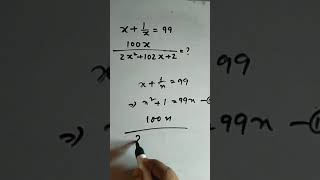 x + 1/x = 99
100x
2x² + 102x + 2 = ?
x + 1/x = 99
⇒ x² + 1 = 99x — ①
100x
2
⇒)
-99x